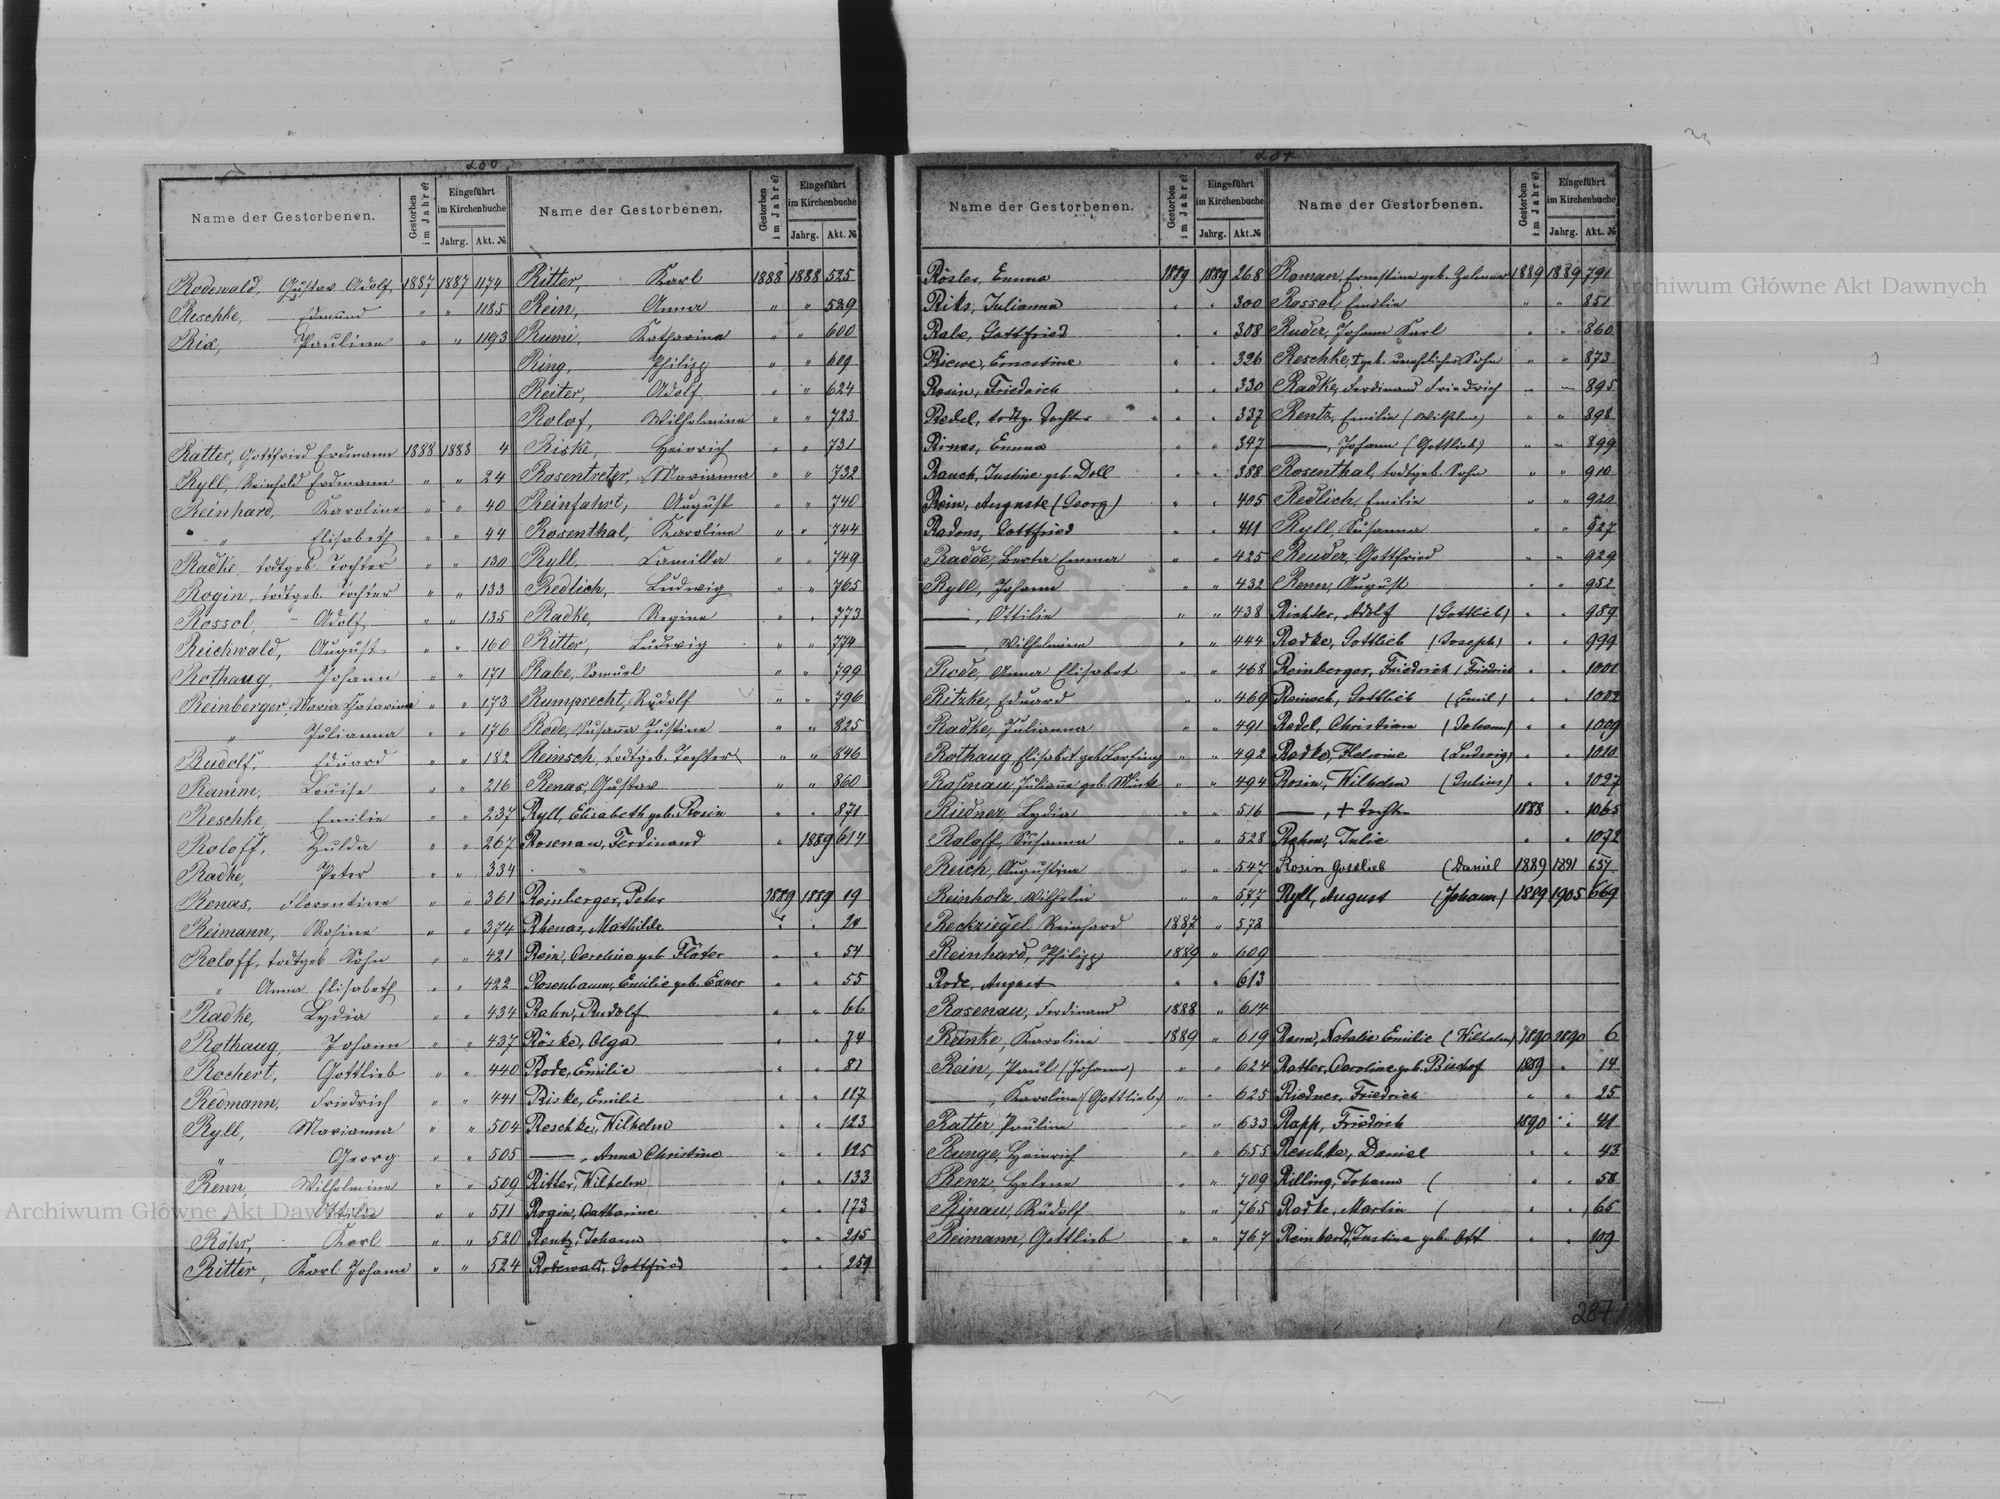 Archiwum Główne Akt Dawnych
Archiwum Główne Akt Dawnych
Name der Gestorbenen. Gestorben im Jahre? Eingeführt im Kirchenbuche Jahrg. Akt. №
Rodewald, Gustav Adolf 1887 1887 1174
Reschke, Edmund " " 1185
Rix, Pauline " " 1193
Ratter, Gottfried Erdmann 1888 1888 4
Ryll, Reinhold Erdmann " " 24
Reinhard, Karoline " " 40
" Elisabeth " " 44
Radke, todtgeb. Tochter " " 130
Rogin, todtgeb. Tochter " " 133
Rossol, Adolf " " 135
Reichwald, August " " 160
Rothaug, Johann " " 171
Reinberger, Maria Catarina " " 173
" Julianna " " 176
Rudolf, Eduard " " 182
Ramm, Louise " " 216
Reschke, Emilie " " 237
Roloff, Hulda " " 267
Radke, Peter " " 334
Renas, Florentine " " 361
Reimann, Rosine " " 374
Roloff, todtgeb Sohn " " 421
" Anna Elisabeth " " 422
Radke, Lydia " " 434
Rothaug, Johann " " 437
Rochert, Gottlieb " " 440
Redmann, Friedrich " " 441
Ryll, Marianna " " 504
" Georg " " 505
Renn, Wilhelmine " " 509
" Ottilie " " 511
Röhr, Karl " " 520
Ritter, Karl Johann " " 524
Name der Gestorbenen. Gestorben im Jahre? Eingeführt im Kirchenbuche Jahrg. Akt. №
Ritter, Karl 1888 1888 525
Rein, Anna " " 529
Rumi, Katharina " " 600
Ring, Philipp " " 609
Reiter, Adolf " " 624
Rolof, Wilhelmine " " 723
Riske, Heinrich " " 731
Rosentreter, Marianna " " 732
Reinfahrt, August " " 740
Rosenthal, Karoline " " 744
Ryll, Camilla " " 749
Redlich, Ludwig " " 765
Radke, Regine " " 773
Ritter, Ludwig " " 774
Rabe, Samuel " " 799
Rumprecht, Rudolf " " 796
Rode, Susanna Justine " " 825
Reinsch, todtgeb. Tochter " " 846
Renas, Gustav " " 860
Ryll, Elisabeth geb. Rosin " " 871
Rosenau, Ferdinand " 1889 614
Reinberger, Peter 1889 1889 19
Rhenas, Mathilde " " 24
Rein, Caroline geb Flöter " " 54
Rosenbaum, Emilie geb. Exner " " 55
Rahn, Rudolf " " 66
Röske, Olga " " 74
Rode, Emilie " " 81
Riske, Emilie " " 117
Reschke, Wilhelm " " 123
——, Anna Christine " " 125
Ritter, Wilhelm " " 133
Rogin, Catharine " " 173
Rentz, Johann " " 215
Rodewald, Gottfried " " 259
Name der Gestorbenen. Gestorben im Jahre? Eingeführt im Kirchenbuche Jahrg. Akt. №
Rösler, Emma 1889 1889 268
Riks, Julianna " " 300
Rabe, Gottfried " " 308
Riewe, Ernestine " " 326
Rosin, Friedrich " " 330
Redel, todtg. Tochter " " 337
Rinas, Emma " " 347
Rauch, Justine geb. Doll " " 388
Rein, Auguste (Georg) " " 405
Radons, Gottfried " " 411
Radde, Berta Emma " " 425
Ryll, Johann " " 432
——, Ottilie " " 438
——, Wilhelmine " " 444
Rode, Anna Elisabet " " 468
Ritzke, Eduard " " 469
Radke, Julianna " " 491
Rothaug Elisabet geb " " 492
Rosenau, Julianne geb. " " 494
Riedner, Lydia " " 516
Roloff, Susanna " " 528
Reich, Augustine " " 547
Reinholz, Wilhelm " " 577
Reckziegel Reinhard 1887 " 578
Reinhard, Philipp 1889 " 609
Rode, August " " 613
Rosenau, Ferdinand 1888 " 614
Reinke, Karoline 1889 " 619
Rein, Paul (Johann) " " 624
——, Karoline (Gottlieb) " " 625
Ratter, Pauline " " 633
Runge, Heinrich " " 655
Renz, Helene " " 709
Rinau, Rudolf " " 765
Reimann, Gottlieb " " 767
Name der Gestorbenen. Gestorben im Jahre? Eingeführt im Kirchenbuche Jahrg. Akt. №
Roman, Ernestine geb. 1889 1889 791
Rossol, Emilie " " 851
Ruder, Johann Karl " " 860
Reschke, Sohn " " 873
Radke, Ferdinand Friedrich " " 895
Rentz, Emilie (Wilhelm) " " 898
——, Johann (Gottlieb) " " 899
Rosenthal, todtgeb. Sohn " " 910
Redlich, Emilie " " 920
Ryll, Susanna " " 927
Reuder, Gottfried " " 929
Renn, August " " 952
Richter, Adolf (Gottlieb) " " 989
Radke, Gottlieb (Joseph) " " 999
Reinberger, Friedrich (Friedrich " " 1001
Reinsch, Gottlieb (Emil) " " 1002
Redel, Christian (Johann) " " 1009
Radke, Helwine (Ludwig) " " 1010
Rosin, Wilhelm (Julius) " " 1027
——, + Tochter 1888 " 1065
Rahn, Julie " " 1072
Rosin Gottlieb (Daniel 1889 1891 657
Ryll, August (Johann) 1889 1905 669
Renn, Natalie Emilie (Wilhelm) 1890 1890 6
Ratter, Caroline geb. Bischof 1889 " 14
Riedner, Friedrich " " 25
Rapp, Friedrich 1890 " 41
Reschke, Daniel " " 43
Rilling, Johann ( " " 58
Radke, Martin ( " " 65
Reinhardt, Justine geb. Ott " " 109
287